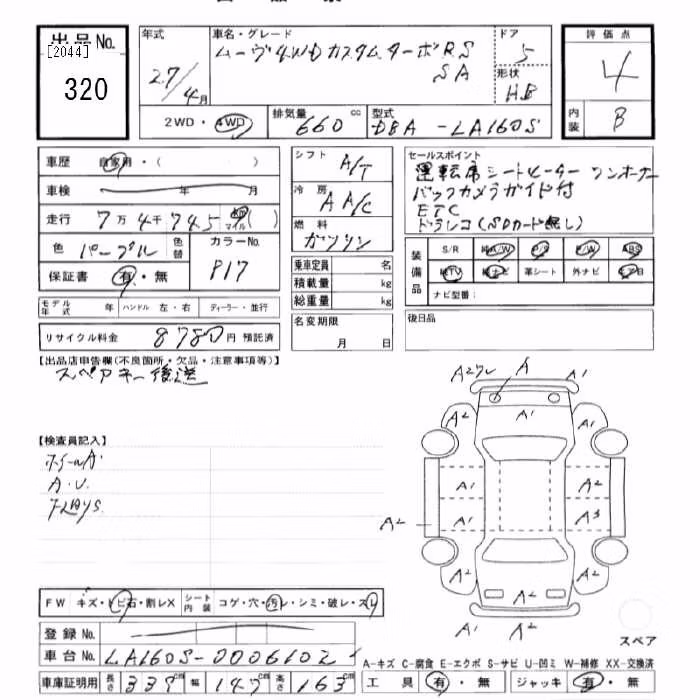 出品No.
[2044]
320
年式
27/4月
車名・グレード
ムーヴ4WDカスタムターボRS
SA
ドア
5
形状
HB
評価点
4
内装
B
2WD・4WD
排気量 660 cc
型式 DBA-LA160S
車歴 自家用・( )
車検 年 月
走行 7万4千745 km マイル ( )
色 パープル 色替
カラーNo.
P17
保証書 有・無
シフト A/T
冷房 AA/C
燃料 ガソリン
セールスポイント
運転席シートヒーター ワンオーナー
バックカメラガイド付
ETC
ドラレコ(SDカード無し)
装備品
S/R 純A/W P/S P/W ABS
純TV 純ナビ 革シート 外ナビ エアB
ナビ型番:
乗車定員 名
積載量 kg
総重量 kg
モデル年式 年 ハンドル 左・右 ディーラー・並行
リサイクル料金 8780円 預託済
名変期限
月 日
後日品
【出品店申告欄(不良箇所・欠品・注意事項等)】
スペアキー後送
【検査員記入】
ホイールA.
A.U.
A2 A A1
A2 A1 A1
A1 A2
A2 A1 A3
A2 A2
A2
A1 A2 A1
スペア
FW キズ・トビ石・割レX シート内装 コゲ・穴・汚レ・シミ・破レ・スレ
登録No.
車台No. LA160S-0006102
車庫証明用 長さ 339cm 幅 147cm 高さ 163cm
A-キズ C-腐食 E-エクボ S-サビ U-凹ミ W-補修 XX-交換済
工具 有・無 ジャッキ 有・無